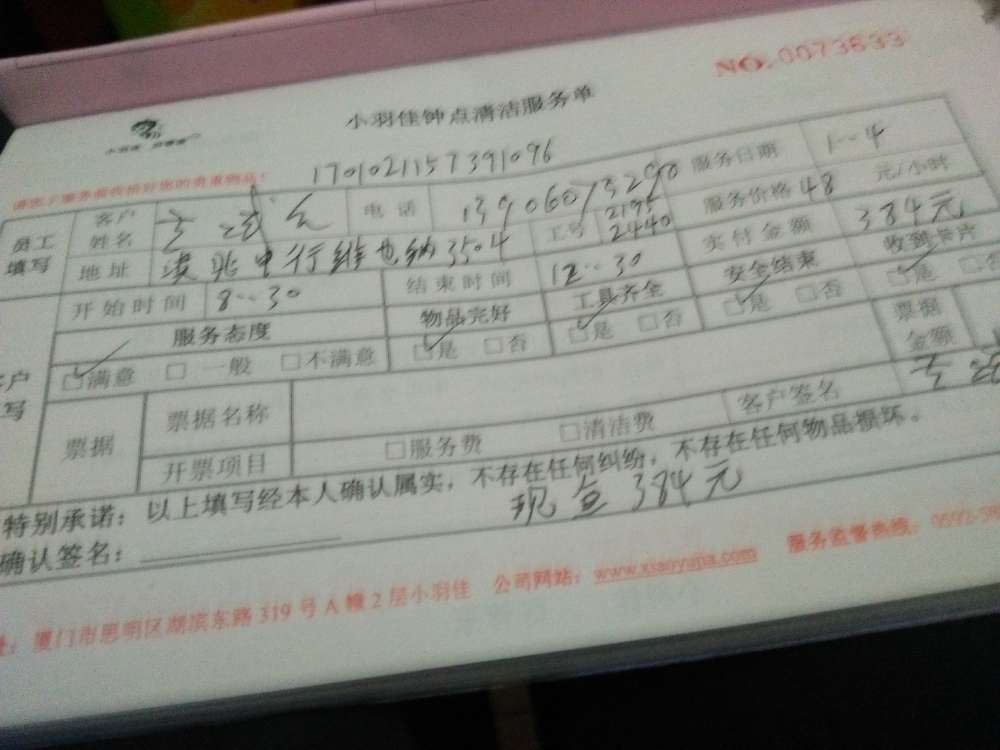 NO.0073633
小羽佳钟点清洁服务单
1701021157391096
员工填写 客户姓名 电话 13906013290 服务日期 1--4
地址 行维也纳3504 工号 2195 2440 服务价格 48 元/小时
开始时间 8--30 结束时间 12--30 实付金额 384元
服务态度 物品完好 工具齐全 安全结束 收到卡片
☑满意 □一般 □不满意 ☑是 □否 ☑是 □否 ☑是 □否 ☑是 □否
票据 票据名称 票据金额
开票项目 □服务费 □清洁费 客户签名
特别承诺：以上填写经本人确认属实，不存在任何纠纷，不存在任何物品损坏。
确认签名： 现 384元
厦门市思明区湖滨东路319号A幢2层小羽佳 公司网站：www.xiaoyujia.com 服务监督热线：0592-